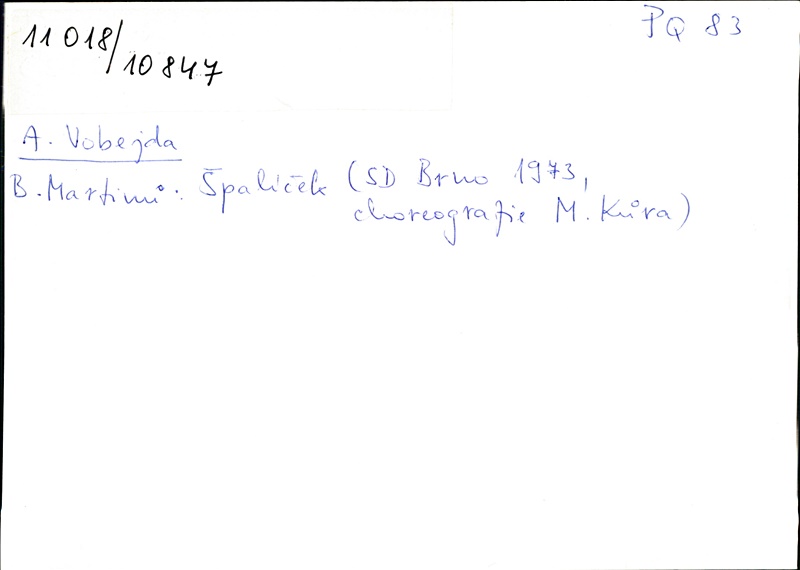 11 018/
10 847
PQ 83
A. Vobejda
B. Martinů: Špalíček (SD Brno 1973,
choreografie M. Kůra)